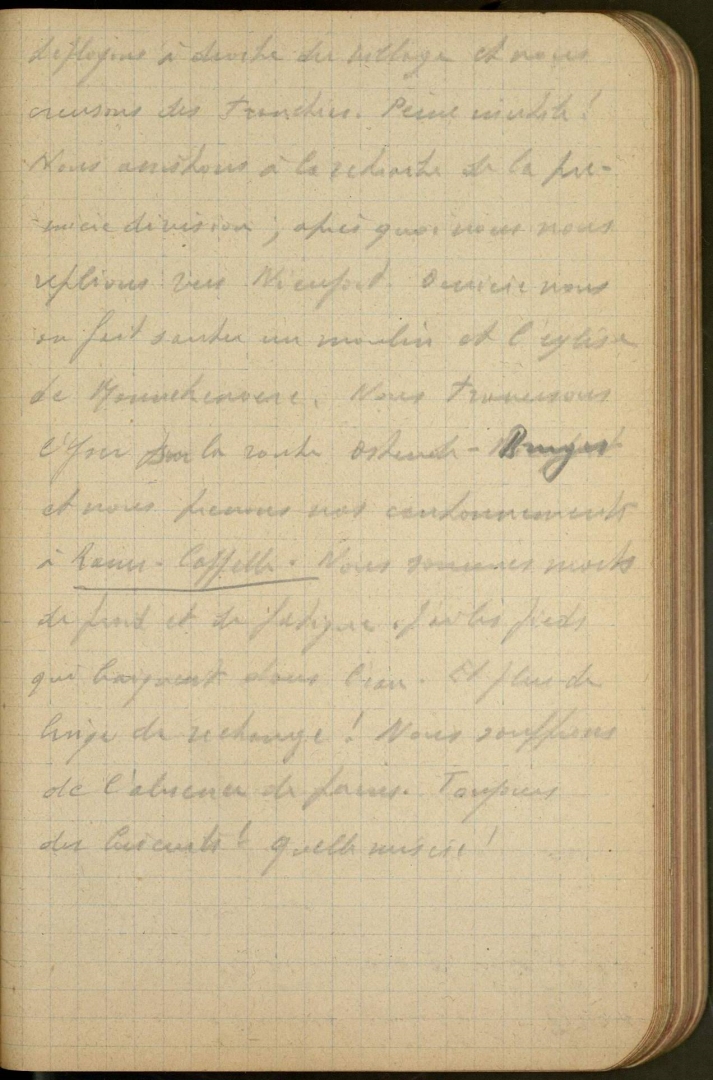 déployons à droite du village et nous
creusons des tranchées. Peine inutile !
Nous assistons à la retraite de la pre-
mière division, après quoi nous nous
replions vers Nieuport. Derrière nous
on fait sauter un moulin et l'église
de Mannekensvere. Nous traversons
l'Yser sur la route Ostende - Bruges
et nous prenons nos cantonnements
à Rams-Cappelle. Nous sommes morts
de froid et de fatigue. J'ai les pieds
qui baignent dans l'eau. Et plus de
linge de rechange ! Nous souffrons
de l'absence de pain. Toujours
des biscuits ! Quelle misère !